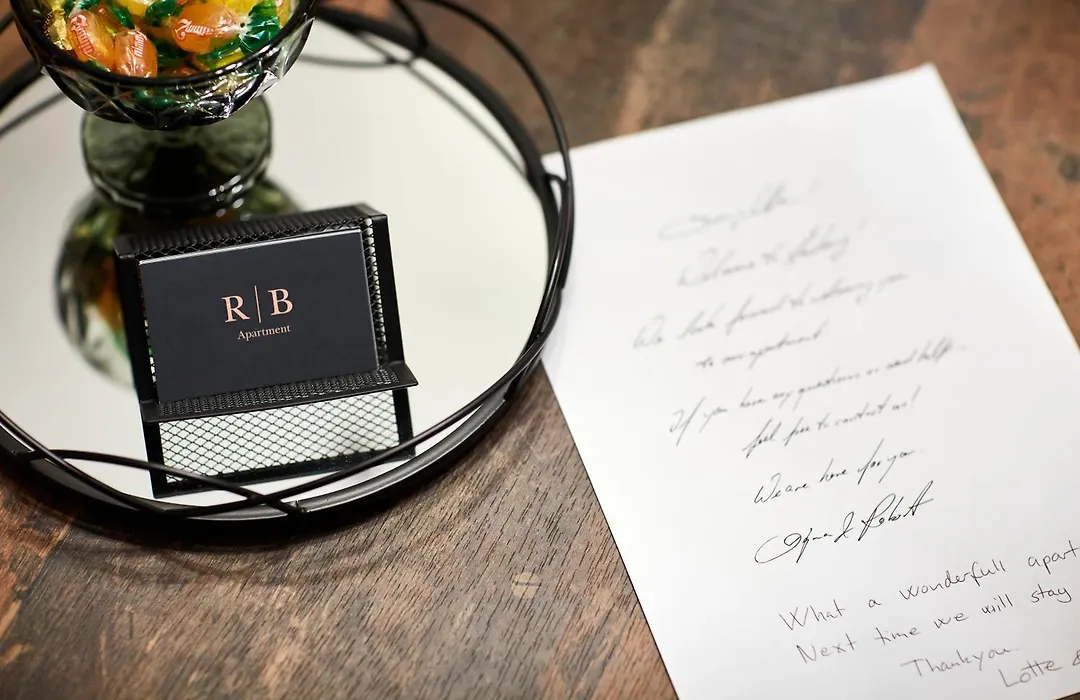 R|B
Apartment
Welcome to
We look forward to welcoming you
to our apartment
If you have any questions or need help,
feel free to contact us!
We are here for you.
& Robert
What a wonderfull apart
Next time we will stay
Thankyou.
Lotte &